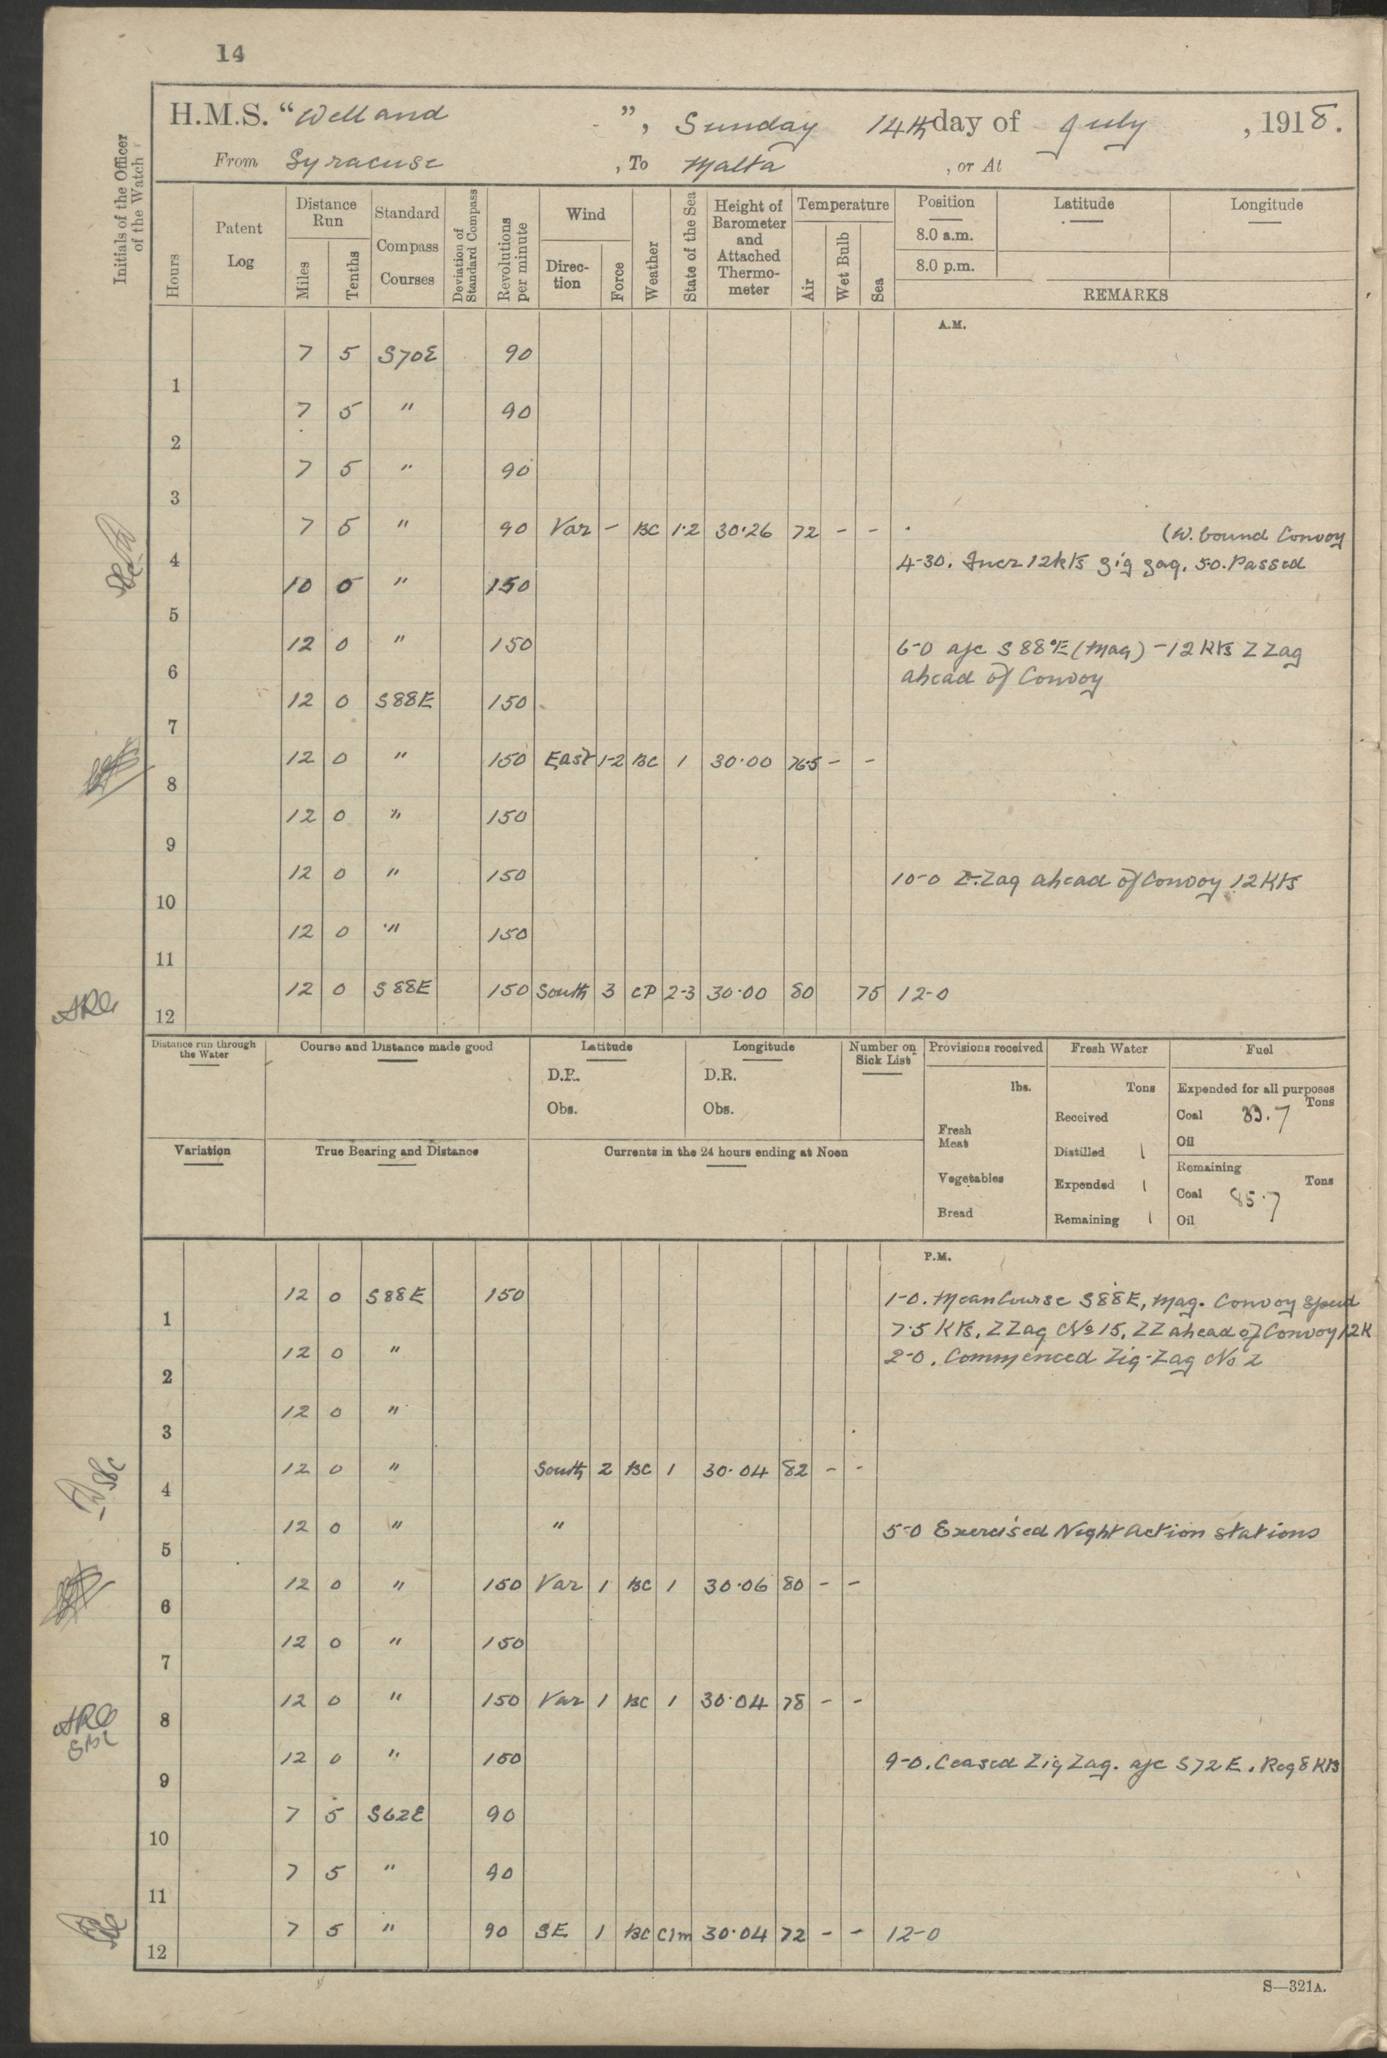 14
H.M.S. "Welland ", Sunday 14th day of July, 1918.
From Syracuse, To Malta, or At
Initials of the Officer of the Watch
Hours
Patent Log
Distance Run
Miles
Tenths
Standard Compass Courses
Deviation of Standard Compass
Revolutions per minute
Wind
Direction
Force
Weather
State of the Sea
Height of Barometer and Attached Thermometer
Temperature
Air
Wet Bulb
Sea
Position
Latitude
Longitude
8.0 a.m.
8.0 p.m.
REMARKS
A.M.
7 5 S70E 90
1
7 5 " 90
2
7 5 " 90
3
7 5 " 90 Var - BC 1·2 30·26 72 - - (W. bound Convoy
4 4-30. Incr 12 kts zig zag. 5.0. Passed
10 5 " 150
5
12 0 " 150 6-0 a/c S88°E (Mag) - 12 Kts Z Zag
6 ahead of Convoy
12 0 S88E 150
7
12 0 " 150 East 1-2 BC 1 30·00 76·5 - -
8
12 0 " 150
9
12 0 " 150 10-0 Z.Zag ahead of Convoy 12 Kts
10
12 0 " 150
11
12 0 S88E 150 South 3 CP 2-3 30·00 80 75 12-0
12
Distance run through the Water
Course and Distance made good
Latitude
D.R.
Obs.
Longitude
D.R.
Obs.
Number on Sick List
Provisions received
lbs.
Fresh Meat
Vegetables
Bread
Fresh Water
Tons
Received
Distilled
Expended
Remaining
Fuel
Expended for all purposes
Tons
Coal 33.7
Oil
Remaining
Tons
Coal 85.7
Oil
Variation
True Bearing and Distance
Currents in the 24 hours ending at Noon
P.M.
12 0 S88E 150 1-0. Mean Course S88E, Mag. Convoy Speed
1 7·5 Kts. Z Zag No 15. ZZ ahead of Convoy 12K
12 0 " 2-0. Commenced Zig-Zag No 2
2
12 0 "
3
12 0 " South 2 BC 1 30·04 82 - -
4
12 0 " " 5-0 Exercised Night Action Stations
5
12 0 " 150 Var 1 BC 1 30·06 80 - -
6
12 0 " 150
7
12 0 " 150 Var 1 BC 1 30·04 78 - -
8
12 0 " 150 9-0. Ceased Zig Zag. a/c S72E. Reg 8 Kts
9
7 5 S62E 90
10
7 5 " 90
11
7 5 " 90 SE 1 BC Clm 30·04 72 - - 12-0
12
S—321A.